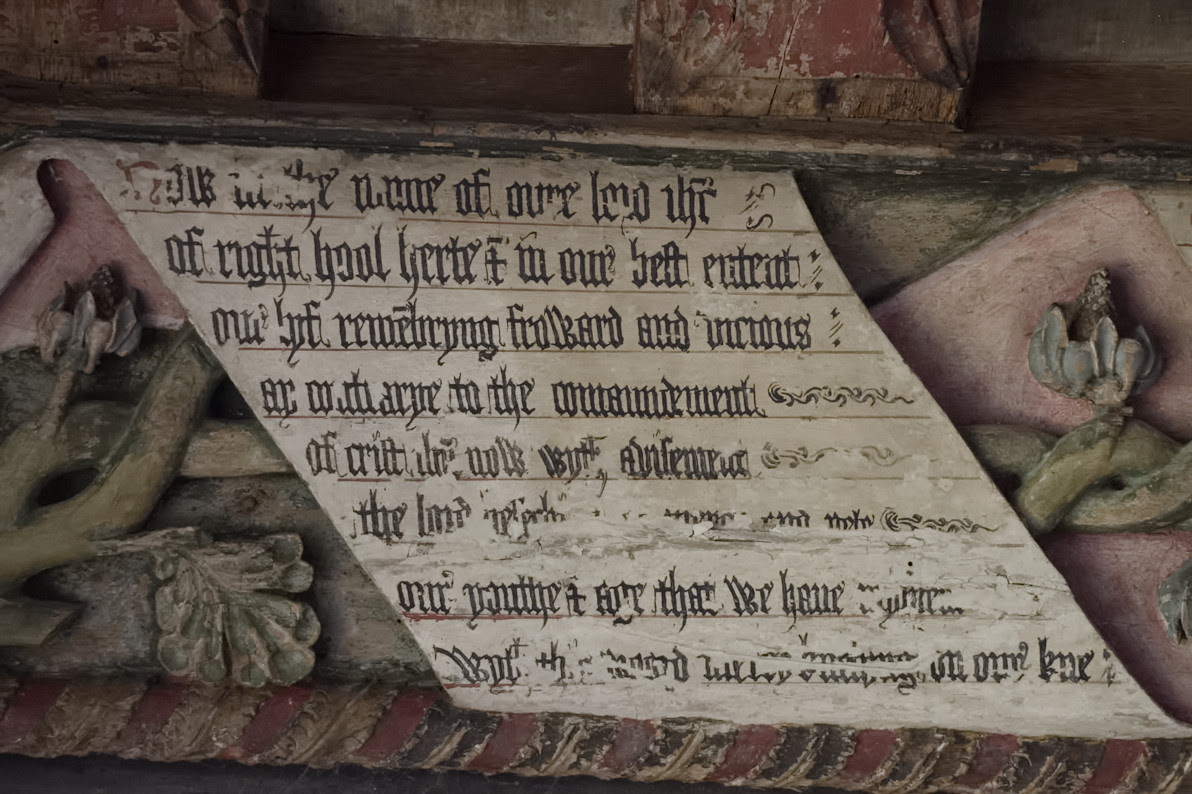 in the name of oure lord ihs
of right hool herte & in our best entent
our lyf remēbryng froward and vicious
ay contrarye to the comaundement
of crist ihū now wyth avisement
the lord besechi and
our youthe & age that we have
wyth on our kne